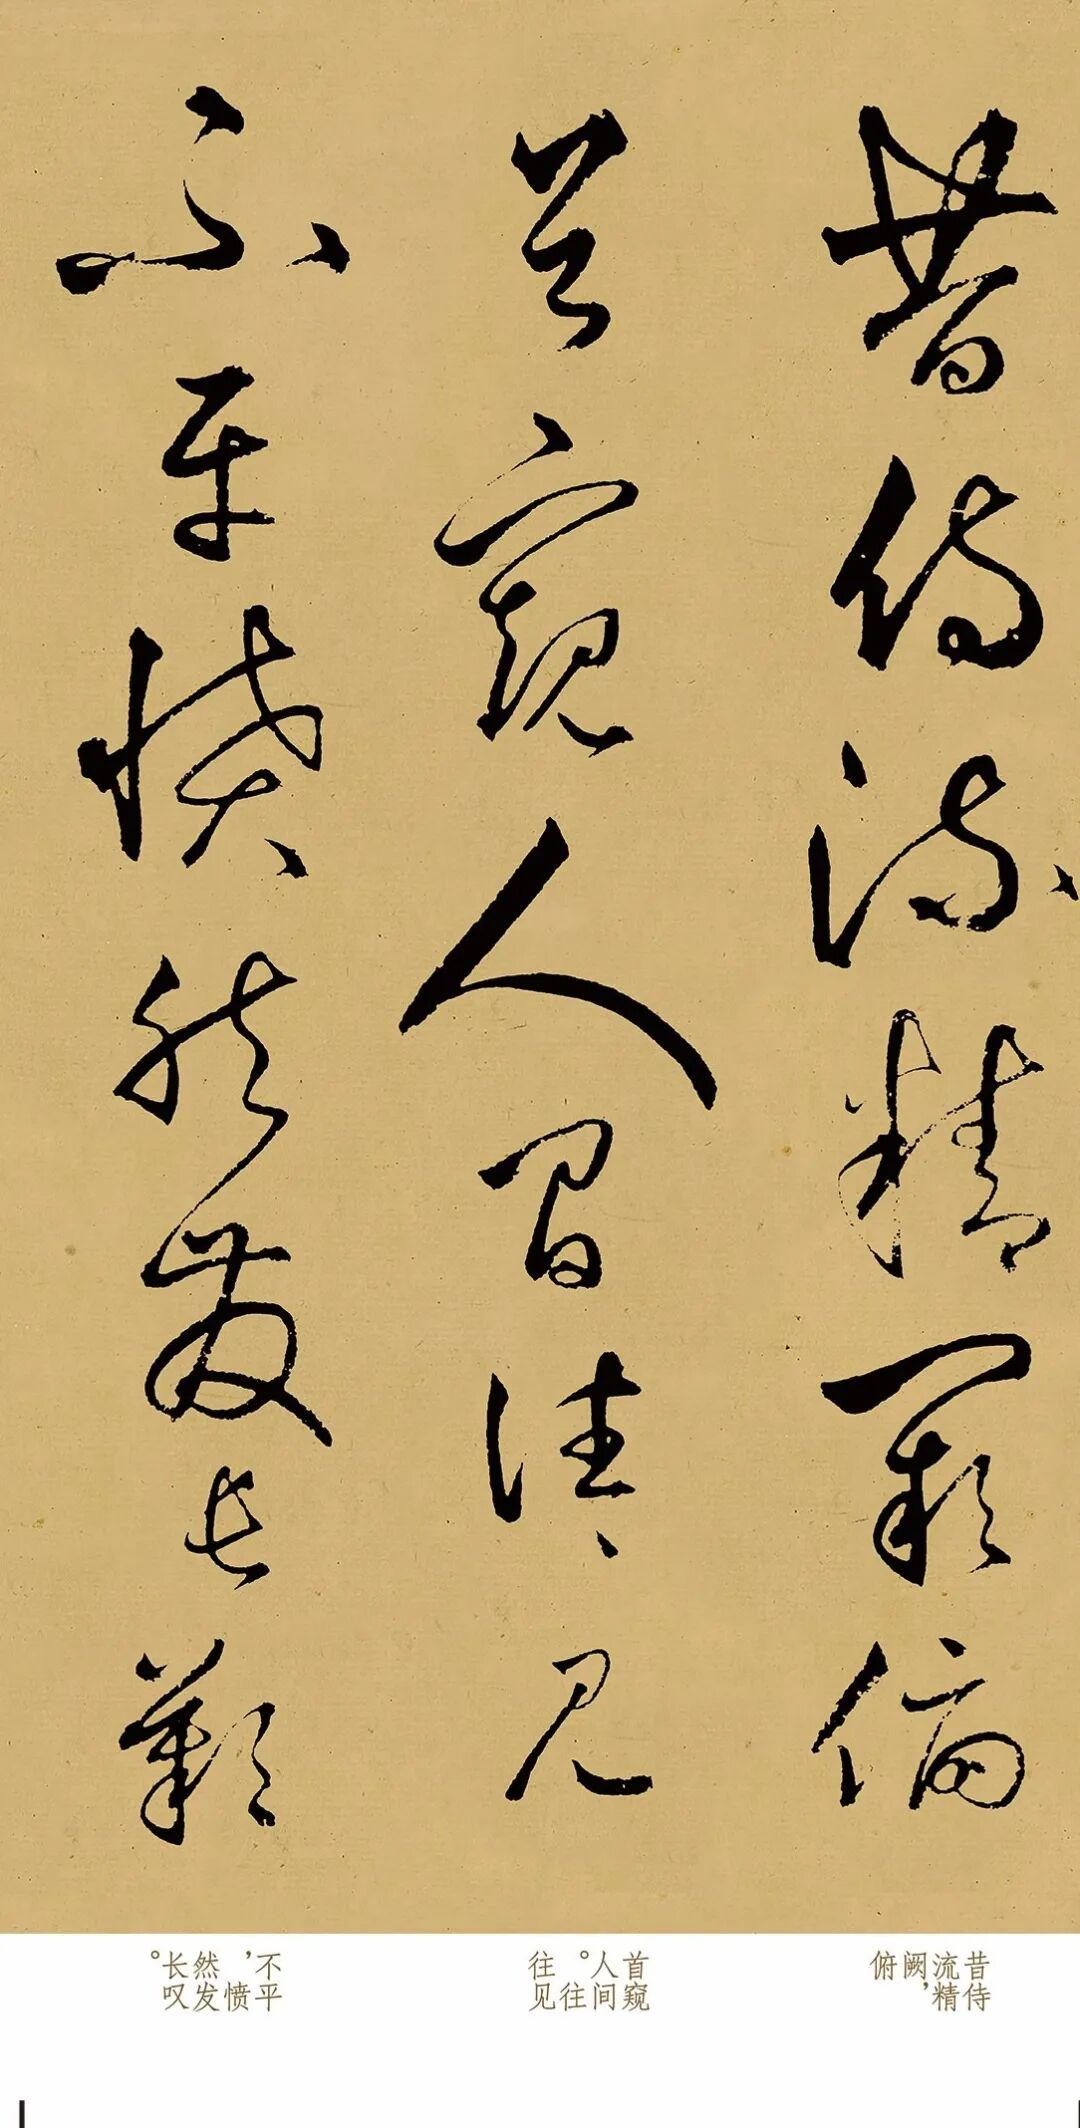 昔侍流精阙俯
首窥人间往往见
不平愤然发长叹
昔侍
流精
阙，
俯
首窥
人间
。往
往见
不平
，愤
然发
长叹
。